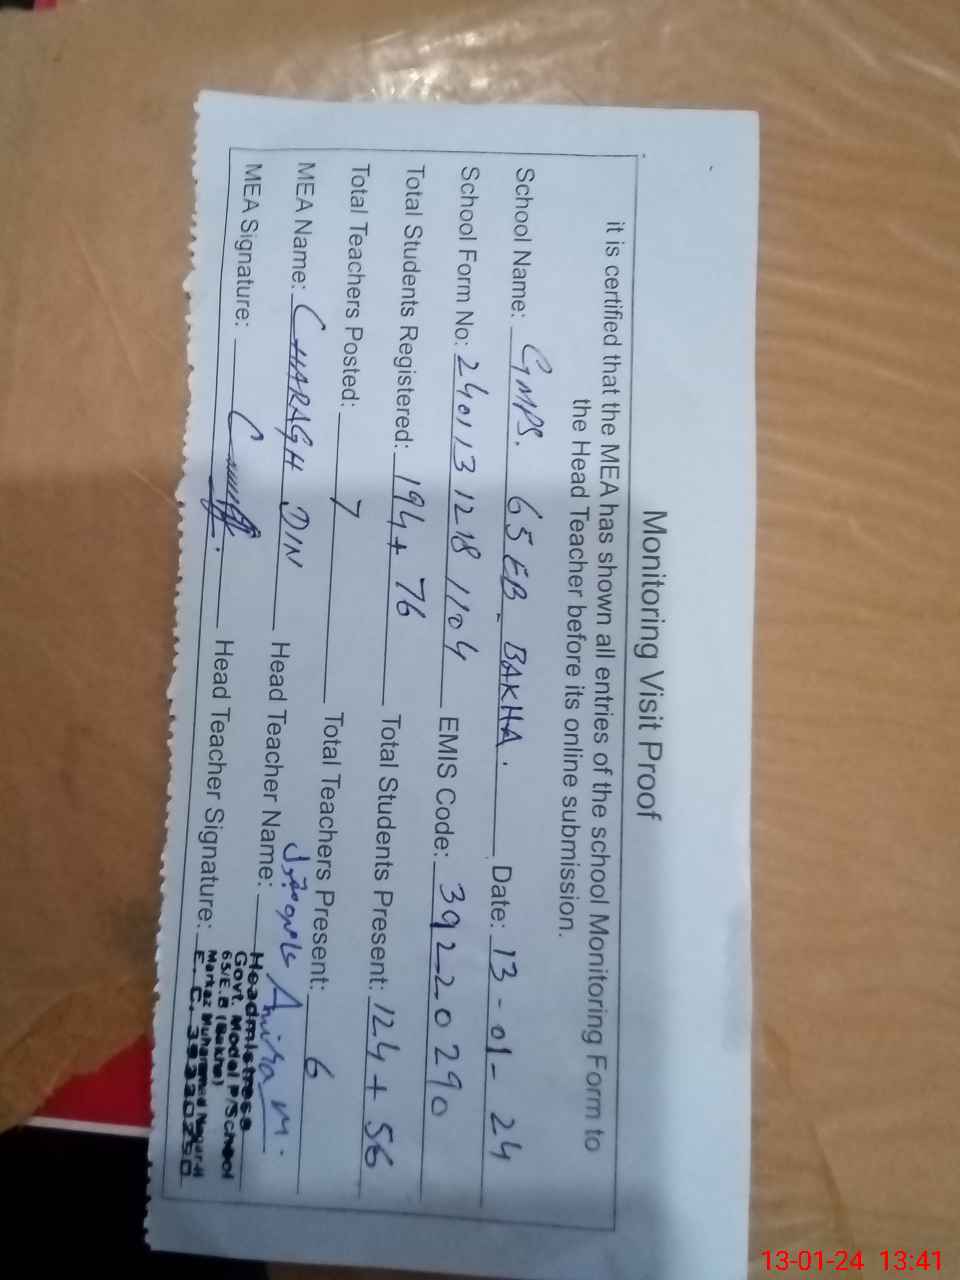 Monitoring Visit Proof
it is certified that the MEA has shown all entries of the school Monitoring Form to
the Head Teacher before its online submission.
School Name: GMPS. 65 EB BAKHA. Date: 13-01-24
School Form No: 24011312181104 EMIS Code: 39220290
Total Students Registered: 194+76 Total Students Present: 124+56
Total Teachers Posted: 7 Total Teachers Present: 6
MEA Name: CHARAGH DIN Head Teacher Name:
MEA Signature: Head Teacher Signature:
Headmistress
Govt. Model P/School
65/E.B (Bakha)
Markaz Muhammad Nagar-II
E. C. 39220290
13-01-24 13:41